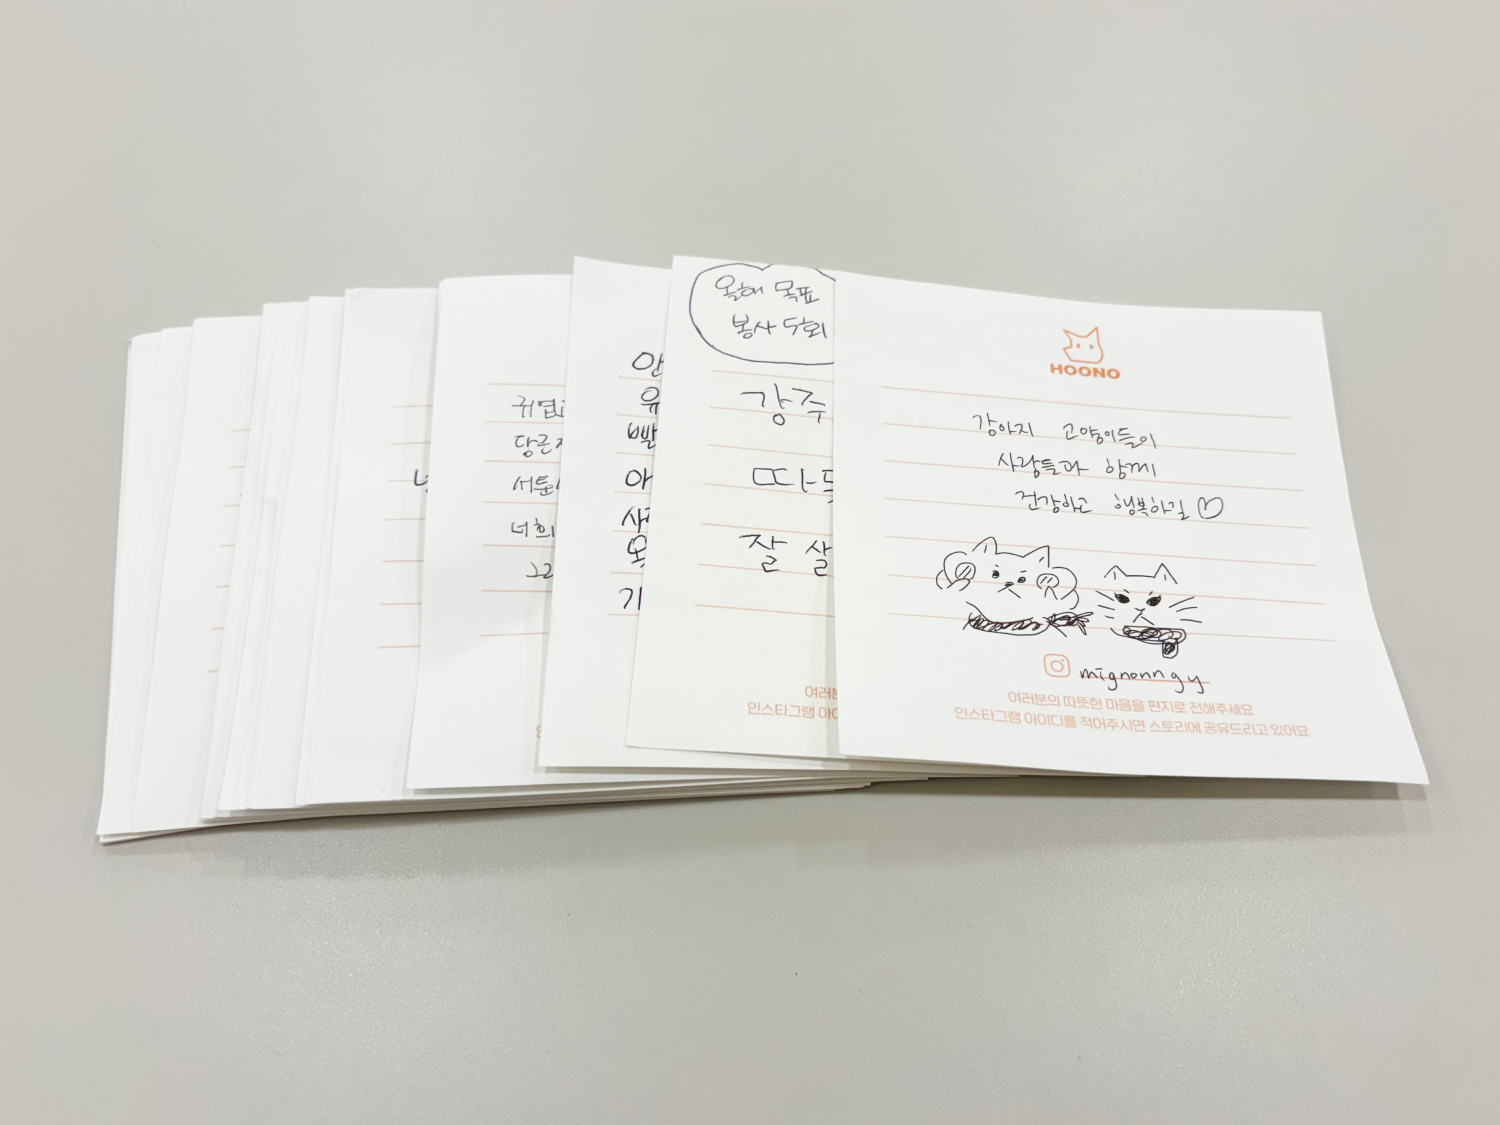 귀엽
당근
서툰
너희
그
안
유
빨
아
사
기
올해 목표
봉사 5회
강주
따뜻
잘 살
여러분
인스타그램 아이
HOONO
강아지 고양이들이
사람들과 함께
건강하고 행복하길♡
mignonngy
여러분의 따뜻한 마음을 편지로 전해주세요
인스타그램 아이디를 적어주시면 스토리에 공유드리고 있어요